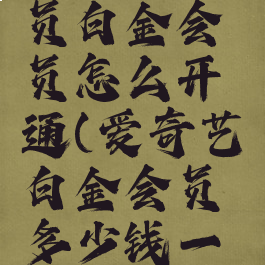 员白金会
员怎么开
通(爱奇艺
白金会员
多少钱一